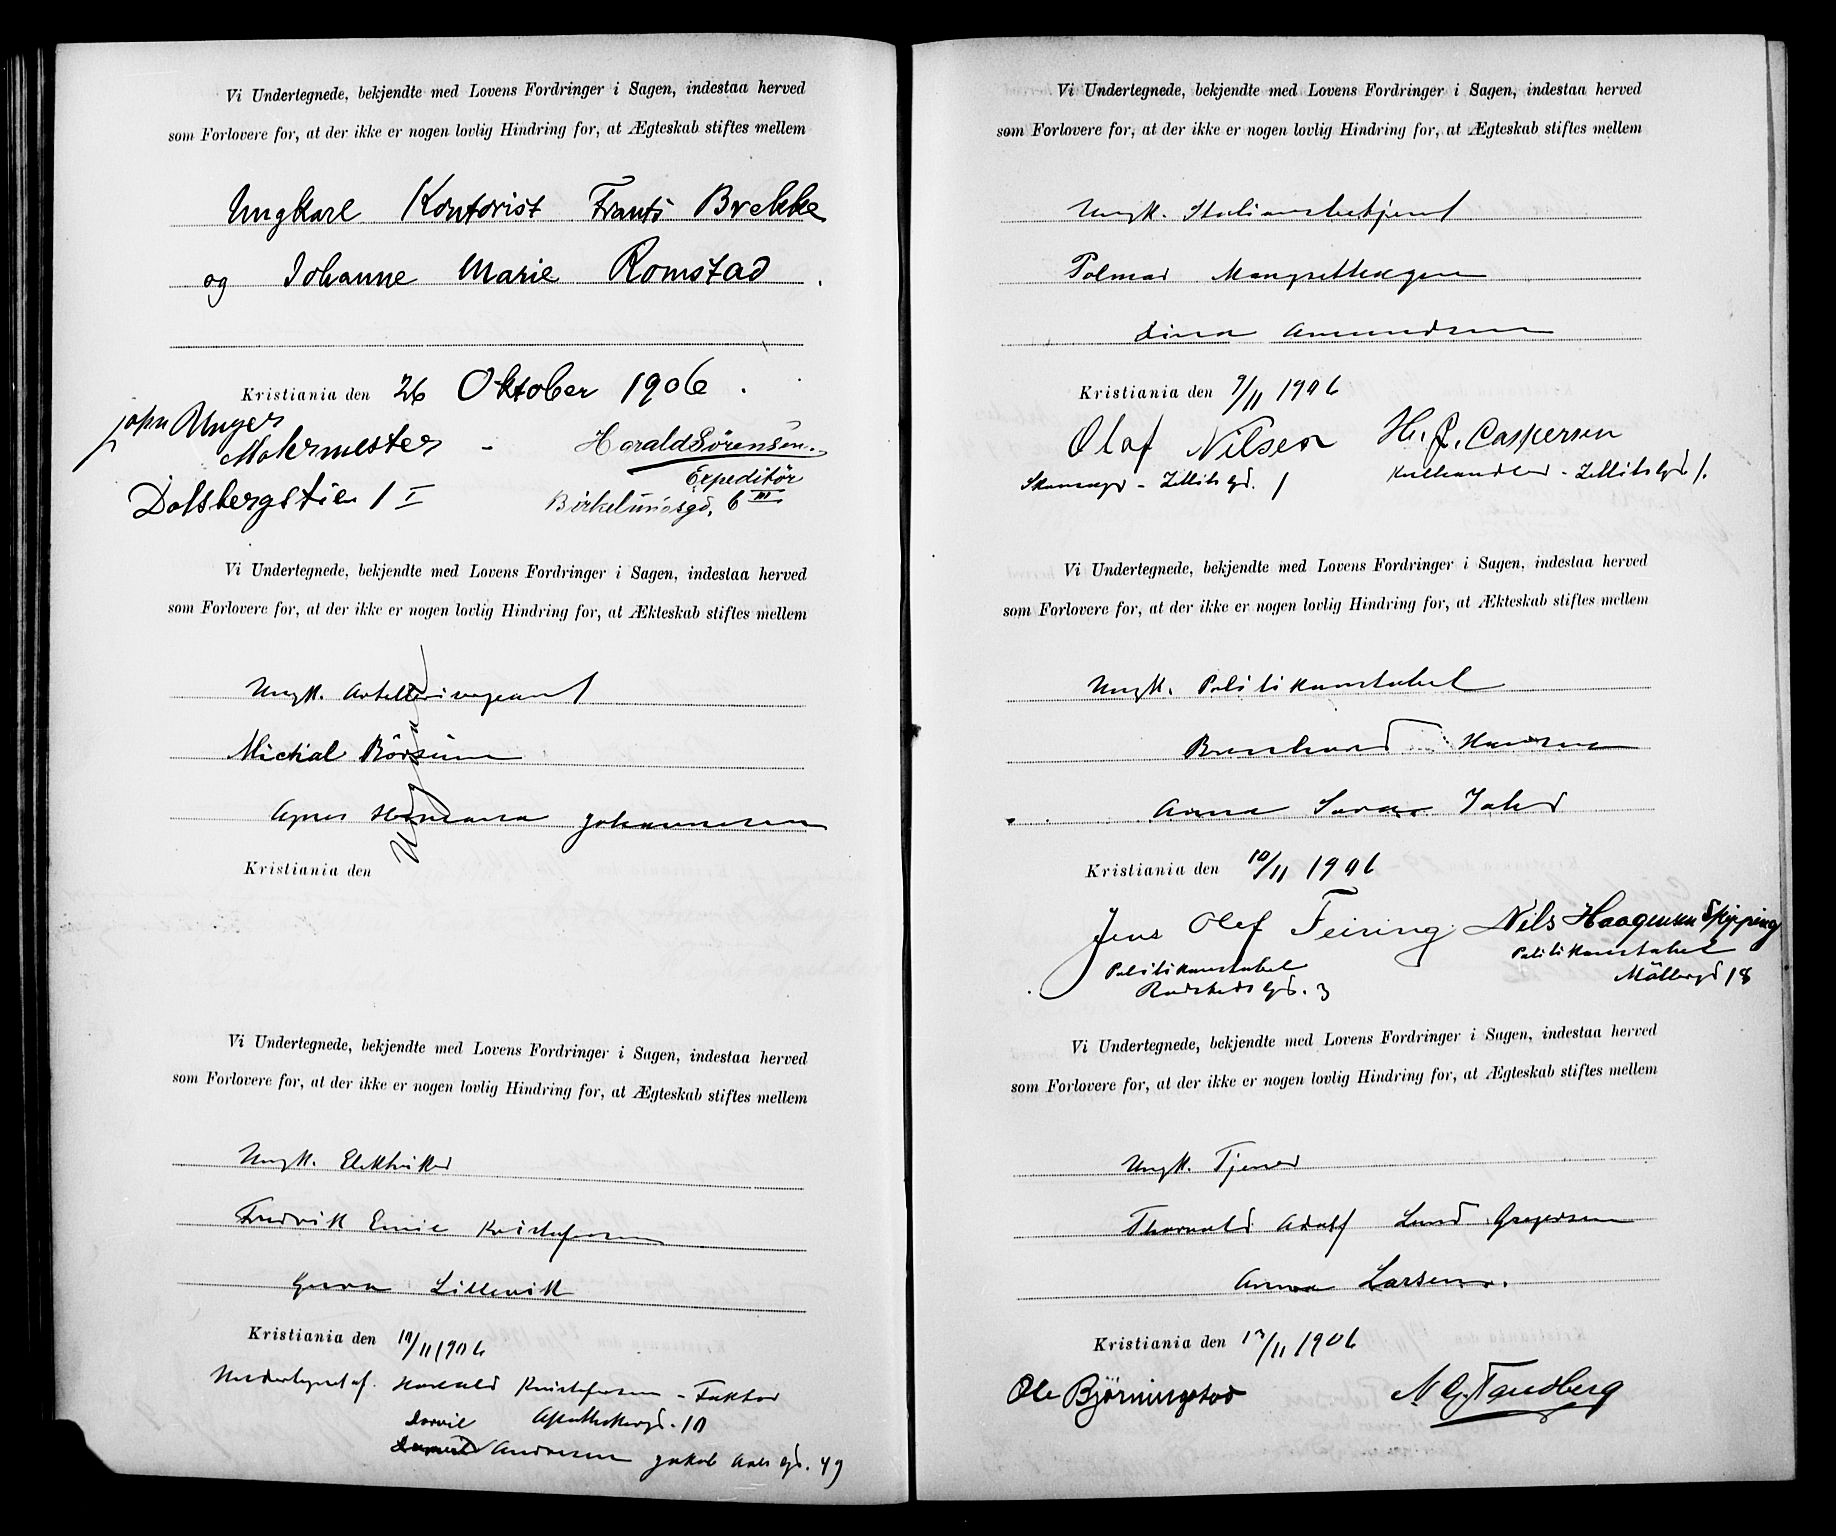 Vi Undertegnede, bekjendte med Lovens Fordringer i Sagen, indestaa herved
som Forlovere for, at der ikke er nogen lovlig Hindring for, at Ægteskab stiftes mellem
Ungkarl Kontorist Frants Brekke
og Johanne Marie Romstad.
Kristiania den 26 Oktober 1906.
John Unger
Malermester -
Dalsbergstien 1 I
Harald Sörensen.
Expeditör
Birkelundsgd. 6 III
Vi Undertegnede, bekjendte med Lovens Fordringer i Sagen, indestaa herved
som Forlovere for, at der ikke er nogen lovlig Hindring for, at Ækteskab stiftes mellem
Ungk. Artillerisergeant
Michal Börsum
Agnes Johannesen
Kristiania den
Vi Undertegnede, bekjendte med Lovens Fordringer i Sagen, indestaa herved
som Forlovere for, at der ikke er nogen lovlig Hindring for, at Ægteskab stiftes mellem
Ungk. Elektriker
Fredrik Emil Kristofersen
Lillevik
Kristiania den 10/11 1906
Undertegnet af. Harald Kristofersen - Faktor
Apothekergd. 10
Andresen Jakob Aals Gd. 49
Vi Undertegnede, bekjendte med Lovens Fordringer i Sagen, indestaa herved
som Forlovere for, at der ikke er nogen lovlig Hindring for, at Ægteskab stiftes mellem
Ungk. Stationsbetjent
Lina Amundsen
Kristiania den 9/11 1906
Olaf Nilsen
Skomager - Zellitsgd. 1
H. J. Caspersen
Kulhandler - Zellitsgd 1.
Vi Undertegnede, bekjendte med Lovens Fordringer i Sagen, indestaa herved
som Forlovere for, at der ikke er nogen lovlig Hindring for, at Ækteskab stiftes mellem
Ungk. Politikonstabel
Bernhard Hansen
Anna
Kristiania den 10/11 1906
Jens Olaf Feiring
Politikonstabel
Rudstedsgd. 3
Nils Haagensen Skipping
Politikonstabel
Möllergd 18
Vi Undertegnede, bekjendte med Lovens Fordringer i Sagen, indestaa herved
som Forlovere for, at der ikke er nogen lovlig Hindring for, at Ægteskab stiftes mellem
Ungk. Tjener
Thorvald Adolf Lund Gregersen
Anna Larsen.
Kristiania den 13/11 1906
Ole Björningstad
N. G. Tandberg